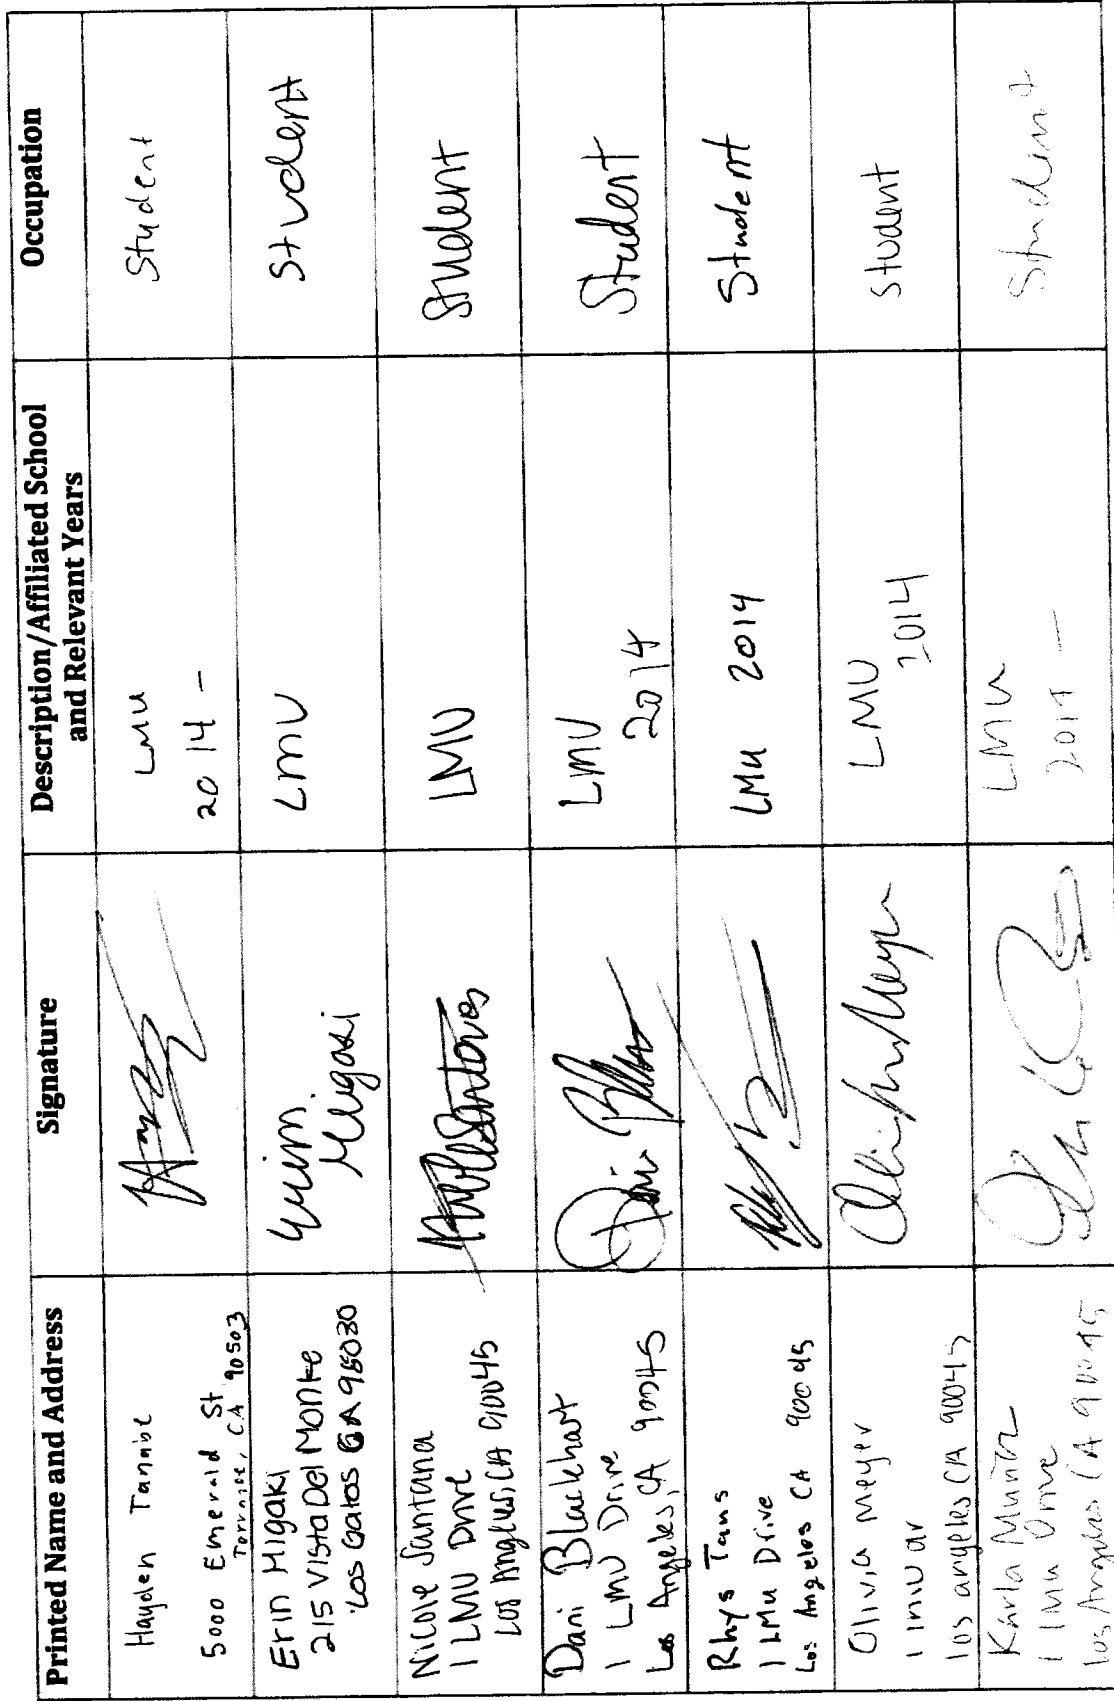 Printed Name and Address
Signature
Description/Affiliated School
and Relevant Years
Occupation
Hayden Tanabe
5000 Emerald St
Torrance, CA 90503
LMU
2014 -
Student
Erin Higaki
215 Vista Del Monte
Los Gatos CA 95030
Erin
Higaki
LMU
Student
Nicole Santana
1 LMU Drive
Los Angeles, CA 90045
Nicole Santana
LMU
Student
Dani Blackhart
1 LMU Drive
Los Angeles, CA 90045
Dani
LMU
2014
Student
Rhys Tans
1 LMU Drive
Los Angeles CA 90045
LMU 2014
Student
Olivia Meyer
1 LMU dr
los angeles CA 90045
Meyer
LMU
2014
Student
Karla Muñoz
1 LMU Drive
Los Angeles CA 90045
LMU
2014 -
Student